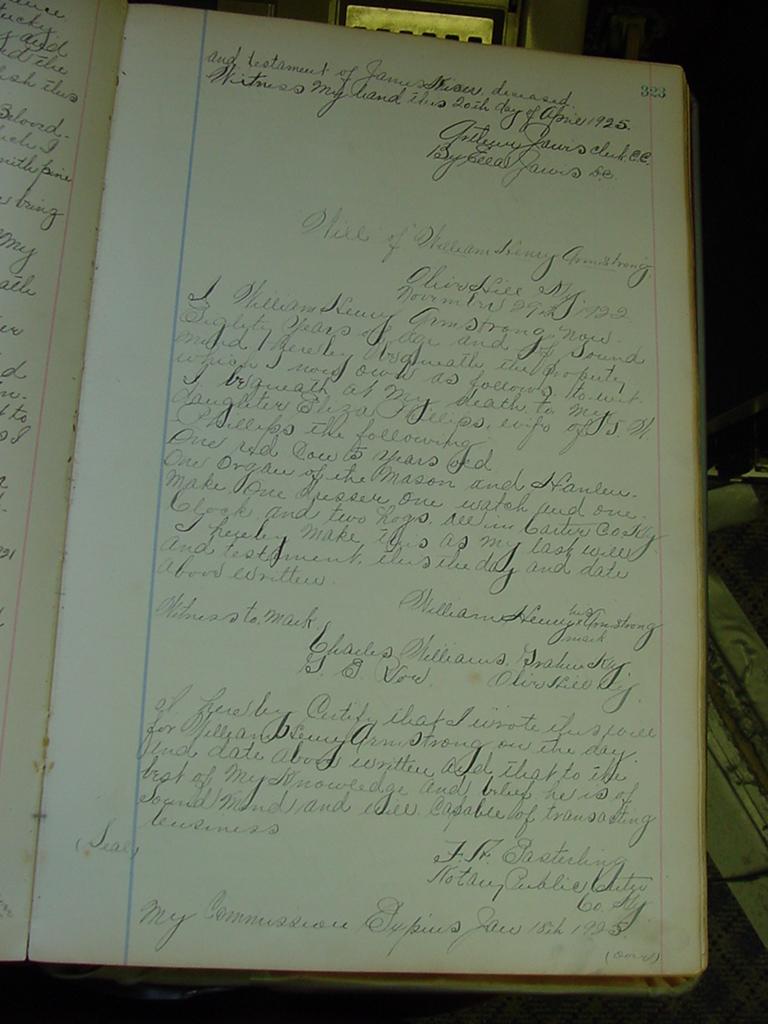 323
and testament of James Kiser, deceased.
Witness My hand this 20th day of April 1925.
Arthur Jarvis Clerk C.C.
By Ella Jarvis D.C.
Will of William Henry Armstrong.
Olive Hill Ky
November 29th 1922
I William Henry Armstrong now
Eighty Years of age and of Sound
mind, hereby bequeath the property
which I now own as follows to-wit.
I bequeath at My death to My
daughter Eliza Phillips, wife of J. W.
Phillips the following
One red Cow 5 years old
One organ of the Mason and Hanlen
Make One dresser one watch and one
Clock and two hogs. All in Carter Co Ky
I hereby make this as my last will
and testament. this the day and date
above written.
William Henry his x mark Armstrong
Witness to. Mark,
Charles Williams, Grahn Ky.
Olive Hill Ky.
I hereby Certify that I wrote this will
for William Henry Armstrong on the day
and date above written and that to the
best of My Knowledge and belief he is of
Sound Mind and will Capable of transacting
business
(Seal)
Notary Public Carter
Co. Ky.
My Commission Expires Jan 18th 1925
(over)